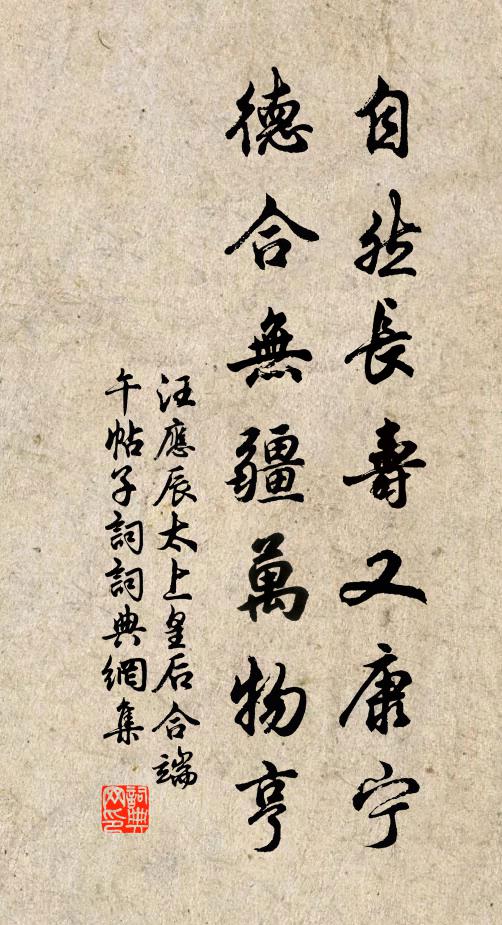 自然長壽又康宁
德合無疆萬物亨
汪應辰太上皇后合端
午帖子詞詞典網集
詞典
网印